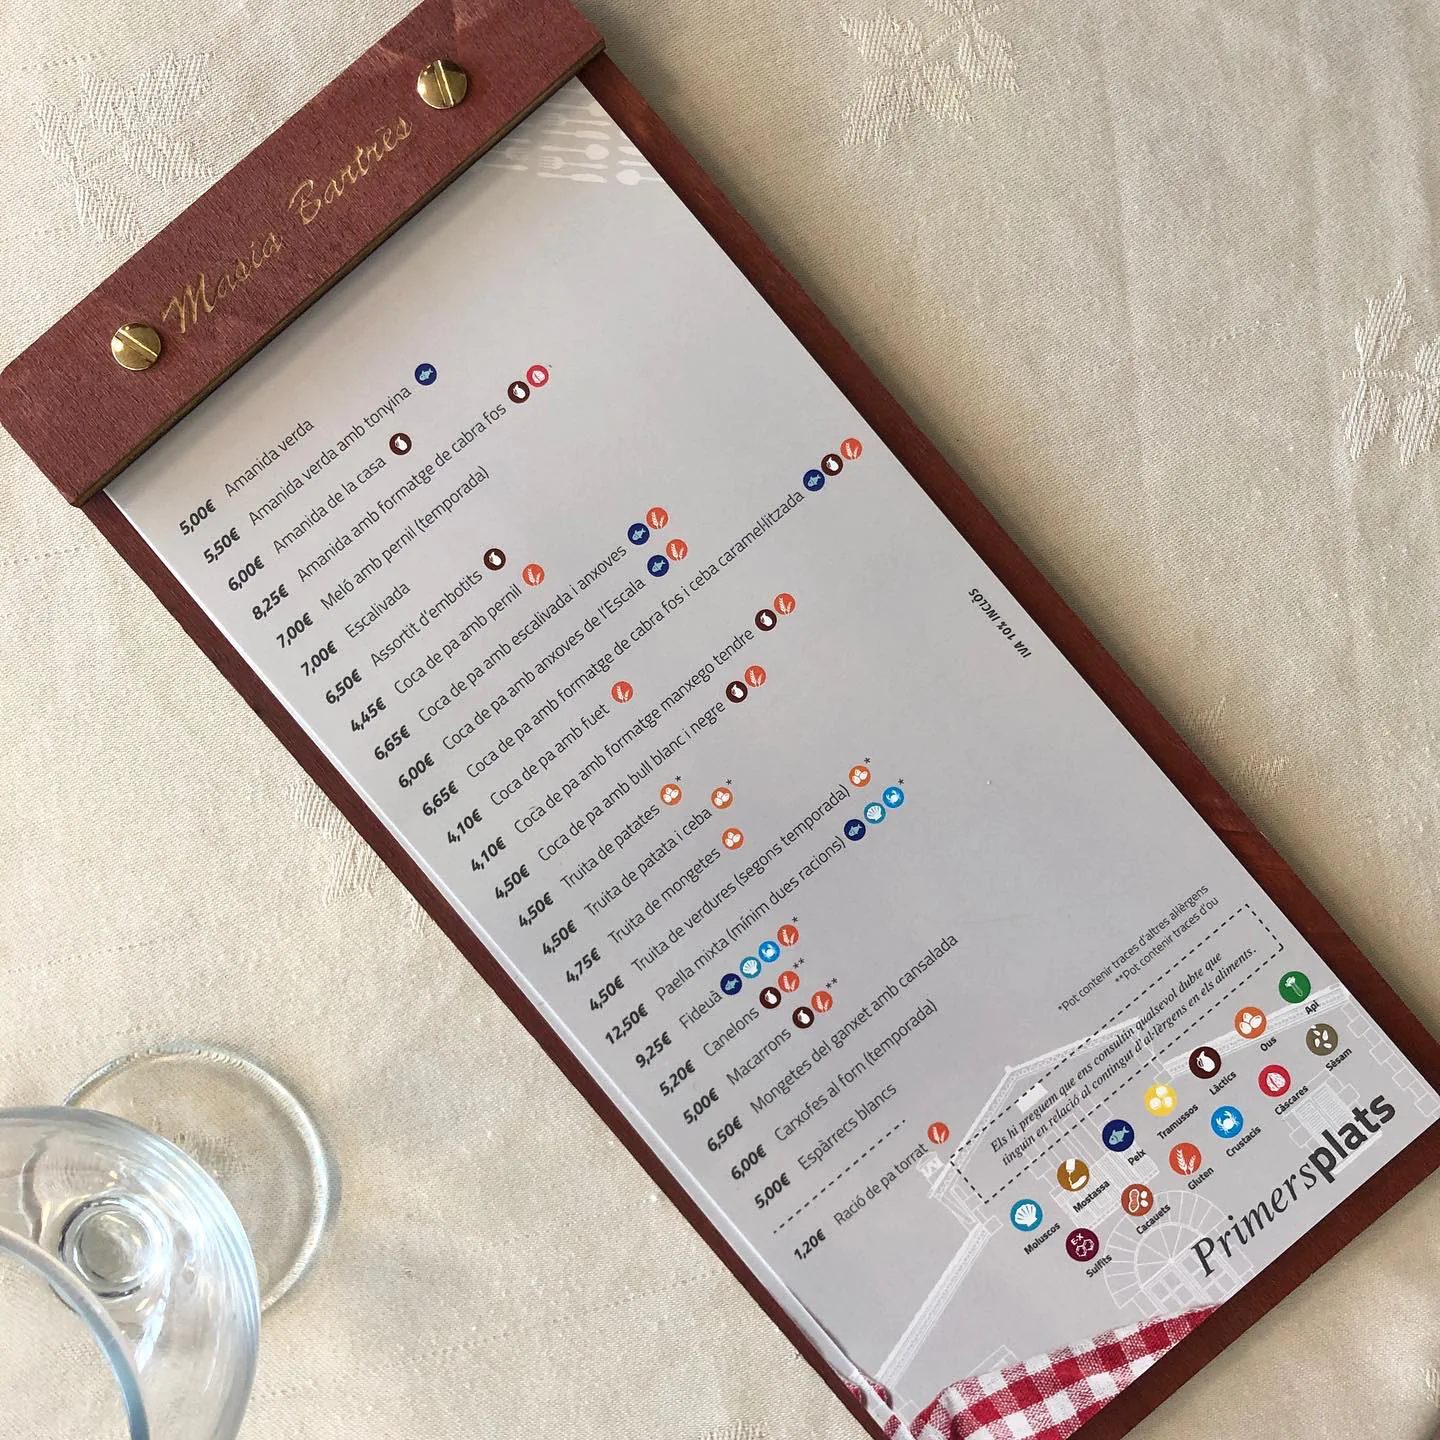 Masia Bartrès
5,00€ Amanida verda
5,50€ Amanida verda amb tonyina
6,00€ Amanida de la casa
8,25€ Amanida amb formatge de cabra fos
7,00€ Meló amb pernil (temporada)
7,00€ Escalivada
6,50€ Assortit d'embotits
4,45€ Coca de pa amb pernil
6,65€ Coca de pa amb escalivada i anxoves
6,00€ Coca de pa amb anxoves de l'Escala
6,65€ Coca de pa amb formatge de cabra fos i ceba caramel·litzada
4,10€ Coca de pa amb fuet
4,10€ Coca de pa amb formatge manxego tendre
4,50€ Coca de pa amb bull blanc i negre
4,50€ Truita de patates *
4,50€ Truita de patata i ceba *
4,75€ Truita de mongetes
4,50€ Truita de verdures (segons temporada) *
12,50€ Paella mixta (mínim dues racions) *
9,25€ Fideuà *
5,20€ Canelons **
5,00€ Macarrons **
6,50€ Mongetes del ganxet amb cansalada
6,00€ Carxofes al forn (temporada)
5,00€ Espàrrecs blancs
1,20€ Ració de pa torrat
IVA 10% INCLÒS
*Pot contenir traces d'altres al·lèrgens
**Pot contenir traces d'ou
Els hi preguem que ens consultin qualsevol dubte que
tinguin en relació al contingut d'al·lèrgens en els aliments.
Moluscos Mostassa Peix Tramussos Làctics Ous Api
Sulfits Cacauets Gluten Crustacis Càscares Sèsam
E-X
Primersplats